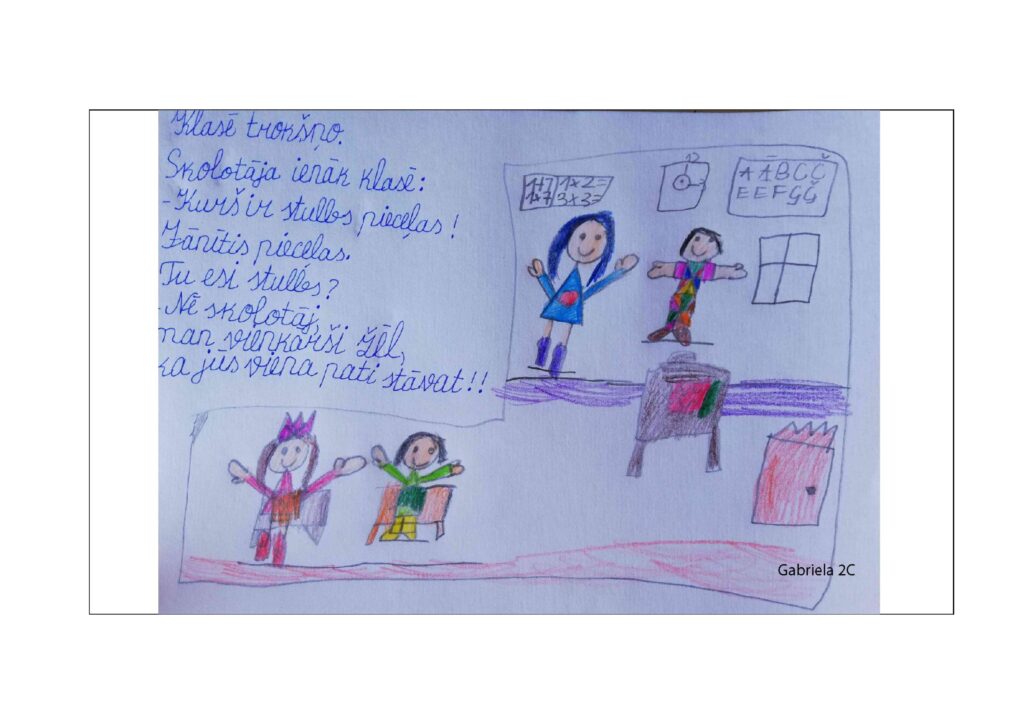 Klasē trokšņo.
Skolotāja ienāk klasē:
-Kurš ir stulbs pieceļas!
Jānītis pieceļas.
Tu esi stulbs?
-Nē skoļotāj,
man vienkārši žēl,
ka jūs viena pati stāvat!!
1+7 1×2=
1×7 3×3=
12
3
A Ā B C Č
E E F G Ģ
Gabriela 2C